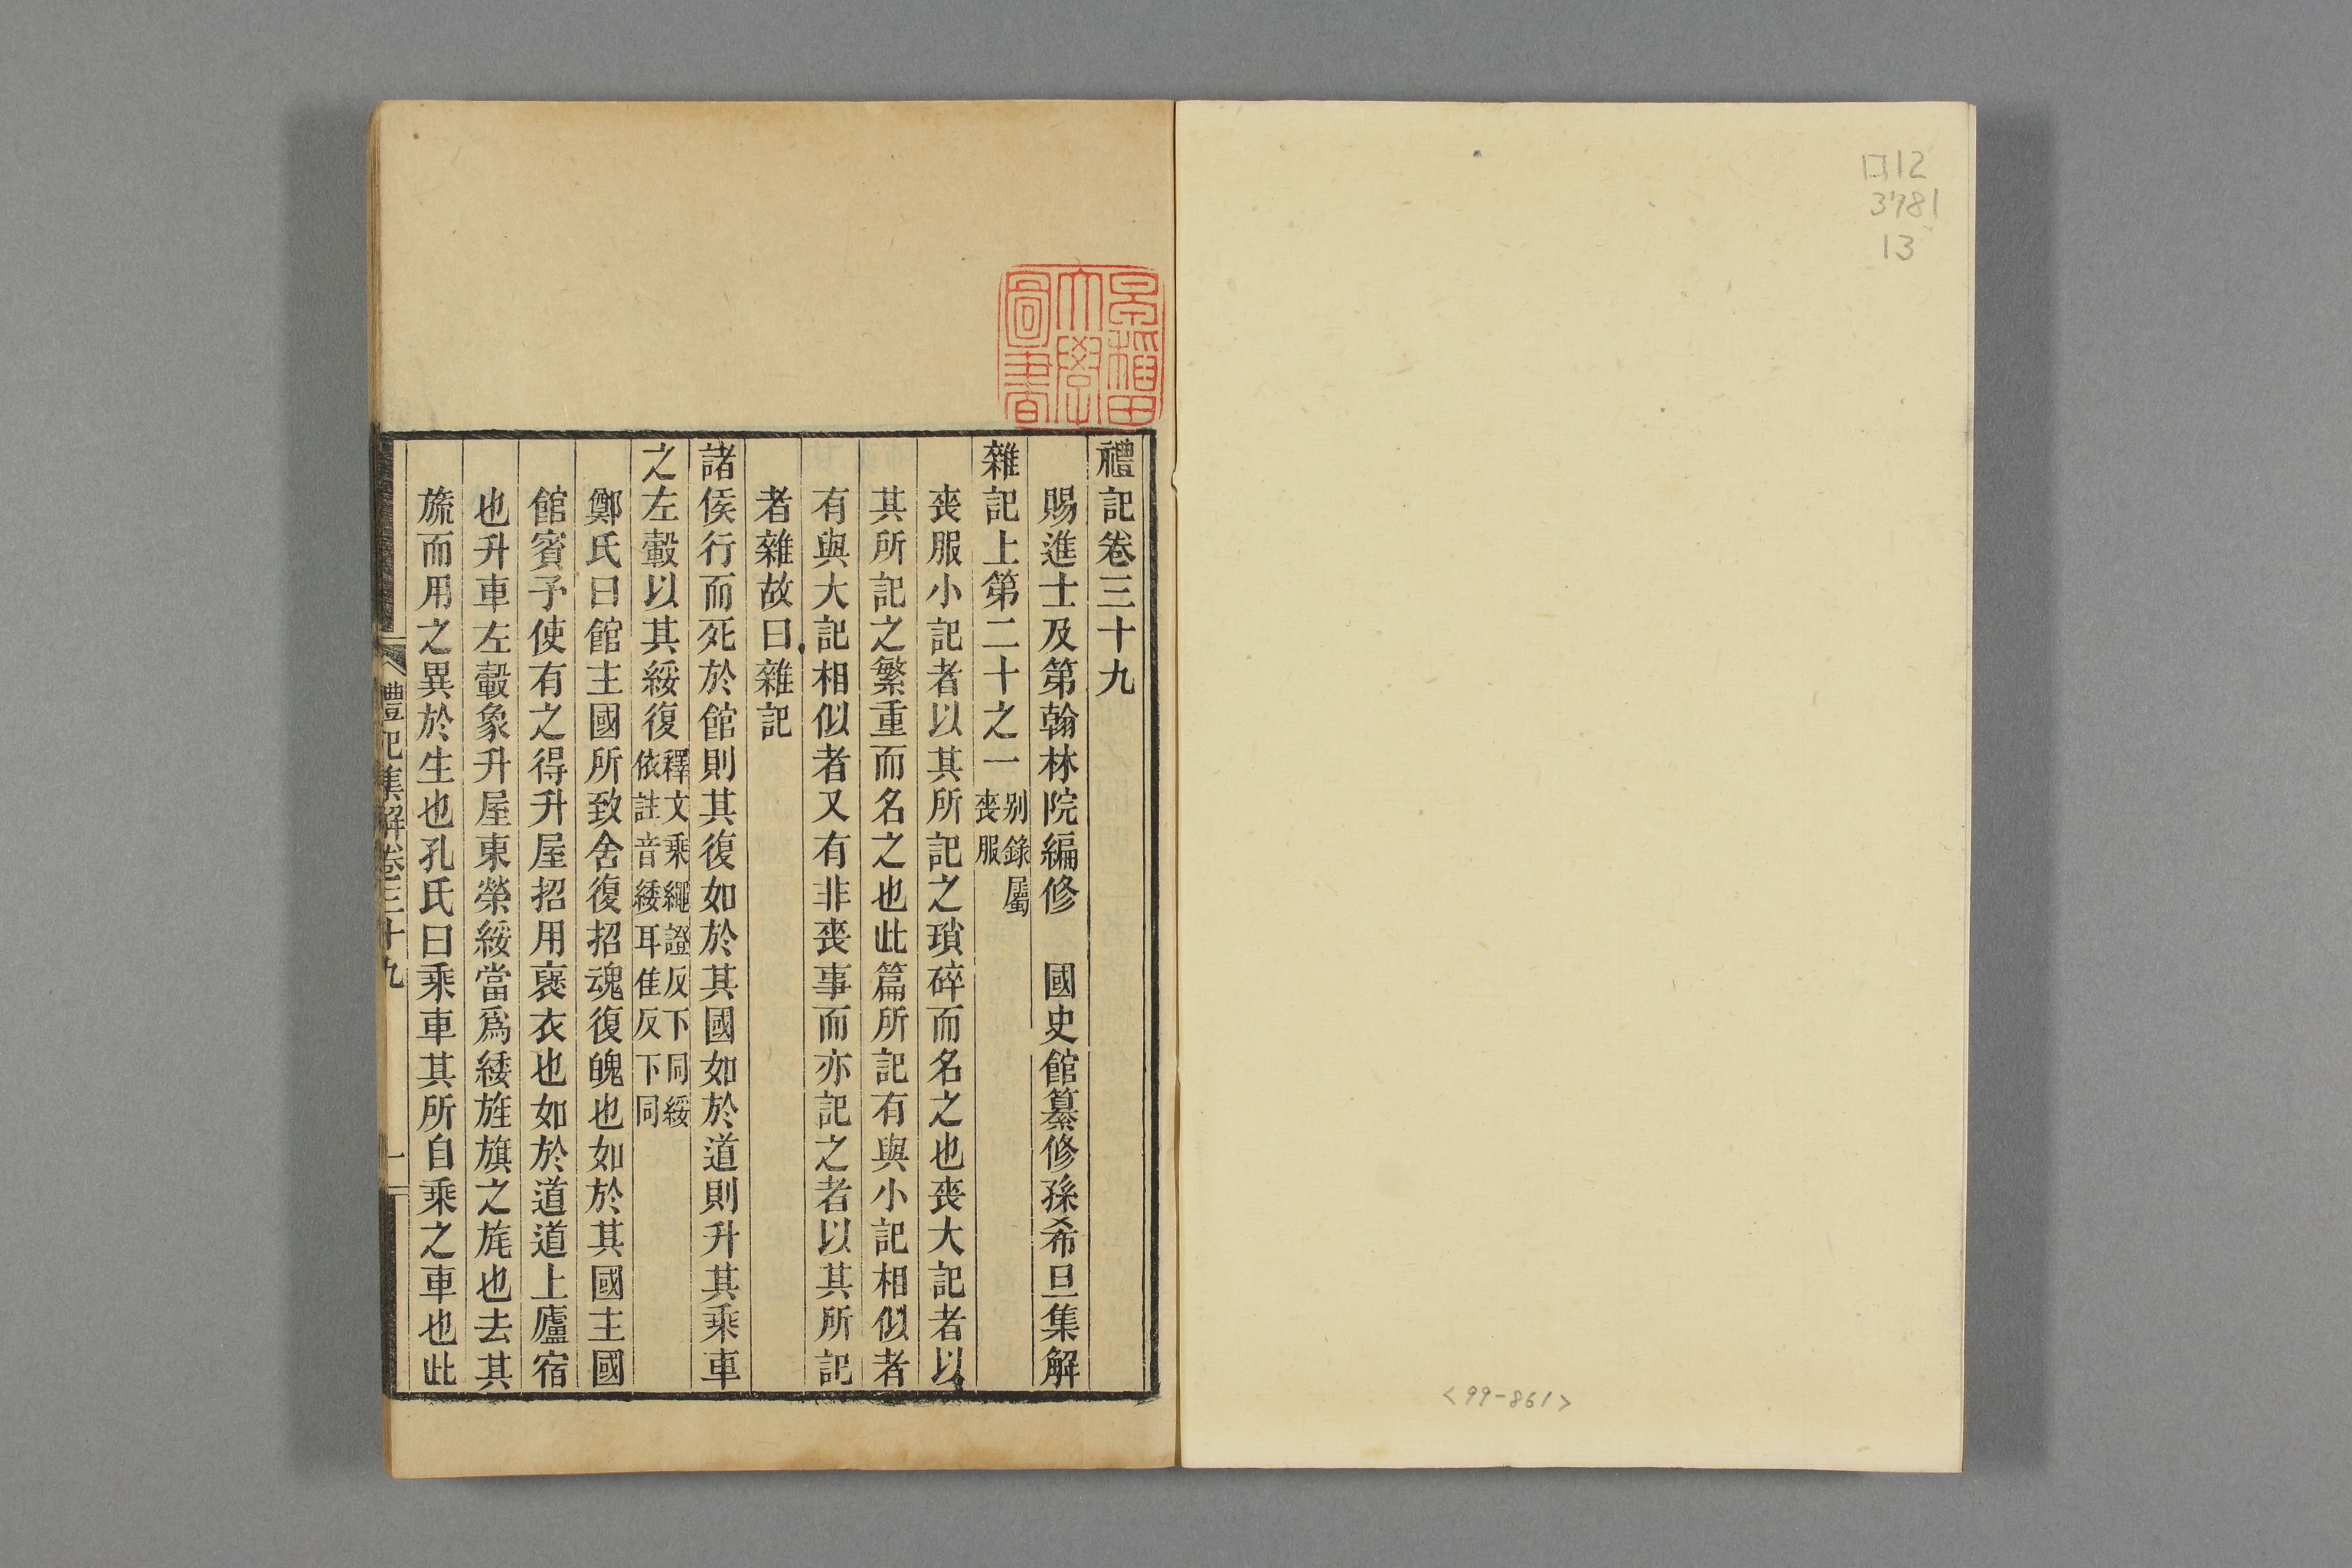 口12
3781
13
<99-861>
早稲田
大學
圖書
禮記卷三十九
賜進士及第翰林院編修 國史館纂修孫希旦集解
雜記上第二十之一 别錄屬喪服
喪服小記者以其所記之瑣碎而名之也喪大記者以
其所記之繁重而名之也此篇所記有與小記相似者
有與大記相似者又有非喪事而亦記之者以其所記
者雜故曰雜記
諸侯行而死於館則其復如於其國如於道則升其乘車
之左轂以其綏復 釋文乘繩證反下同綏依註音緌耳隹反下同
鄭氏曰館主國所致舍復招魂復魄也如於其國主國
館賓予使有之得升屋招用褒衣也如於道道上廬宿
也升車左轂象升屋東榮綏當爲緌旌旗之旄也去其
旒而用之異於生也孔氏曰乘車其所自乘之車也此
禮記集解卷三十九 一